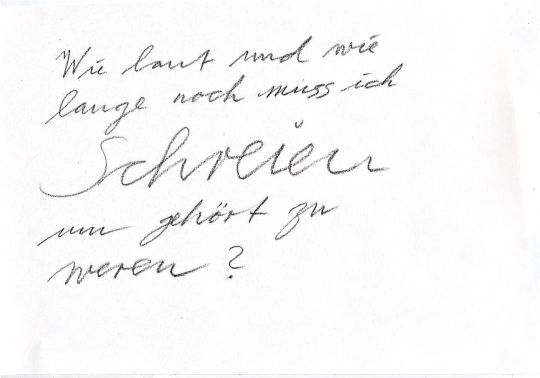 Wie laut und wie
lange noch muss ich
Schreien
um gehört zu
weren?